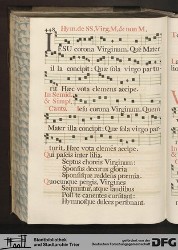 Hym. de SS. Virg. M. & non M.
IESU corona Virginum. Quē Mater
illa concipit: Quæ sola virgo partu-
rit: Hæc vota clemens accipe.
In Semid.
& Simpl.
Iesu corona Virginum. Quem
Mater illa concipit: Quæ sola virgo par-
turit, Hæc vota clemens accipe.
Qui pascis inter lilia,
Septus choreis Virginum:
Sponsus decorus gloria
Sponsisque reddens præmia.
Quocumque pergis, Virgines
Sequuntur, atque laudibus
Post te canentes cursitant:
Hymnosque dulces personant.
Stadtbibliothek
und Stadtarchiv Trier
gefördert durch
DFG Deutsche
Forschungsgemeinschaft